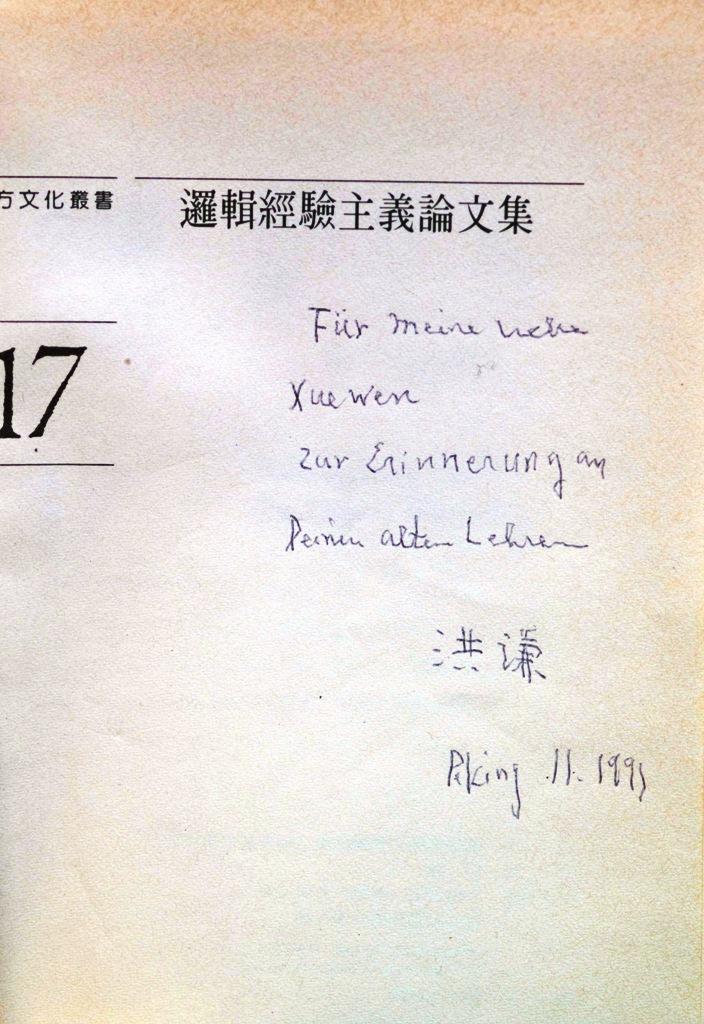 方文化叢書
邏輯經驗主義論文集
17
Für meine liebe
Xuewen
zur Erinnerung an
Deinen alten Lehrer
洪謙
Peking 11. 1991